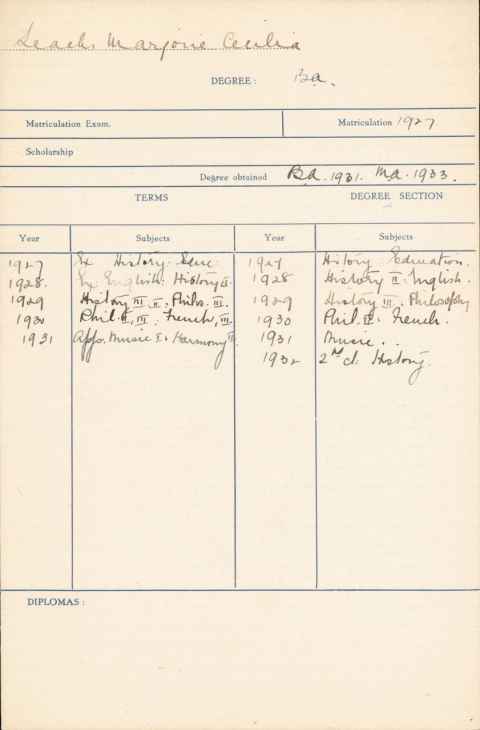 Leach. Marjorie Cecilia
DEGREE: Ba.
Matriculation Exam. Matriculation 1927
Scholarship
Degree obtained Ba. 1931. Ma. 1933.
TERMS DEGREE SECTION
Year Subjects Year Subjects
1927 Ex History. Educ 1927 History Education.
1928. Ex English. History II. 1928 History II. English.
1929 History III II. Philos. III. 1929 History III. Philosophy
1930 Phil. II, III. French, III. 1930 Phil. II. French.
1931 App. Music I. Harmony II 1931 Music . .
1932 2nd cl. History.
DIPLOMAS: